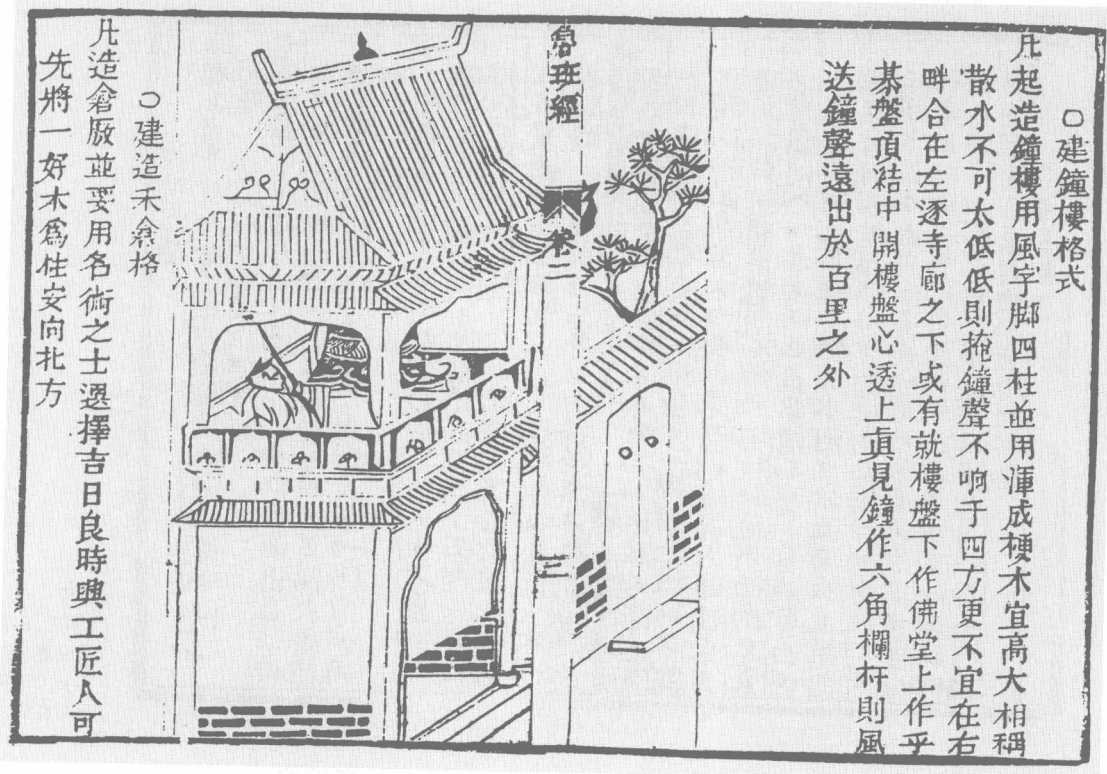 建鐘樓格式
凡起造鐘樓用風字脚四柱並用渾成梗木宜高大相稱
散水不可太低低則掩鐘聲不响于四方更不宜在右
畔合在左逐寺廊之下或有就樓盤下作佛堂上作乎
棊盤頂結中開樓盤心透上眞見鐘作六角欄杆則風
送鐘聲遠出於百里之外
魯班經
卷二
三
建造禾倉格
凡造倉厫並要用名術之士選擇吉日良時興工匠人可
先將一好木爲住安向北方